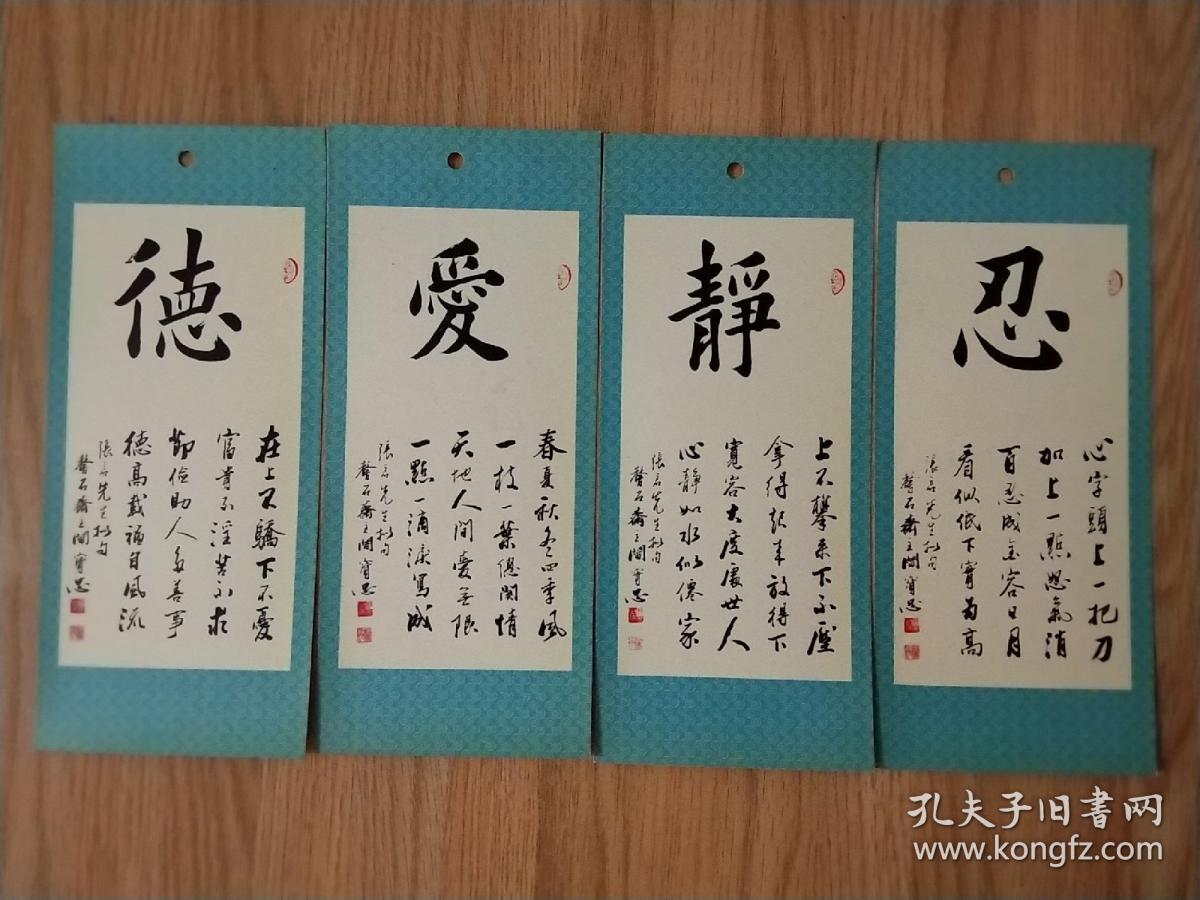 德
在上不驕下不憂
富貴不淫苦不求
節俭助人多善事
德高載福自風流
先生
石齋主閆寶忠
愛
春夏秋冬四季風
一枝一葉總関情
天地人間愛無限
一點一滴淚寫成
先生
石齋主閆寶忠
靜
上不攀來下不壓
拿得起来放得下
寬容大度處世人
心靜如水似僊家
先生
石齋主閆寶忠
忍
心字頭上一把刀
加上一點怒氣消
百忍成金容日月
看似低下實為高
先生
石齋主閆寶忠
孔夫子旧书网
www.kongfz.com